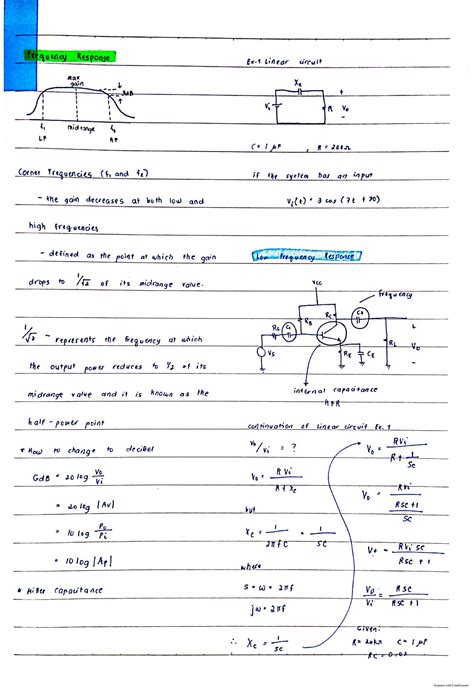 Frequency Response
max
gain
3dB
f₁ midrange f₂
LP HP
Corner Frequencies (f₁ and f₂)
- the gain decreases at both low and
high frequencies
- defined as the point at which the gain
drops to 1/√2 of its midrange value.
1/√2 - represents the frequency at which
the output power reduces to 1/2 of its
midrange value and it is known as the
half-power point
* How to change to decibel
GdB = 20 log Vo/Vi
= 20 log |Av|
= 10 log Po/Pi
= 10 log |Ap|
* Miller Capacitance
Ex.1 Linear circuit
Xc
Vi R Vo
+
-
C = 1 μF , R = 20kΩ
if the system has an input
Vi(t) = 3 cos (7t + 30)
Low Frequency Response
Vcc
Frequency
RB
Rc
RS
Vs
RE
CE
RL
Vo
+
-
internal capacitance
continuation of linear circuit Ex. 1
Vo/Vi = ?
Vo = RVi / R + Xc
but
Xc = 1/2πfC = 1/SC
where
S = ω = 2πf
jω = 2πf
∴ Xc = 1/SC
Vo = RVi / R + 1/SC
Vo = RVi / RSC + 1 / SC
Vo = RVi SC / RSC + 1
Vo/Vi = RSC / RSC + 1
Given:
R = 20kΩ C = 1 μF
RC = 0.02
Scanned with CamScanner